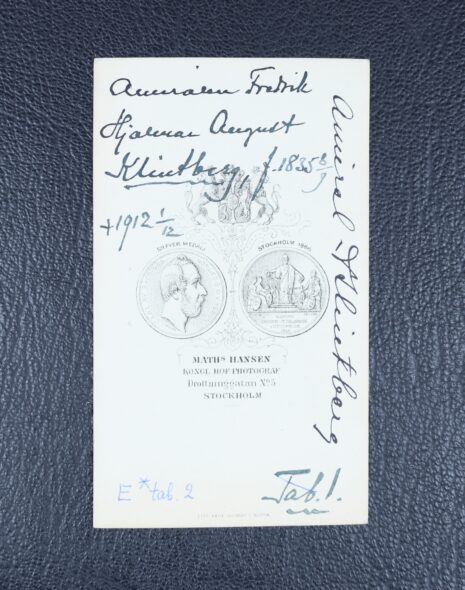 Amiralen Fredrik
Hjalmar August
Klintberg, f. 1835 8/9
+ 1912 1/12
Amiral Klintberg
SILFVER MEDALJ
STOCKHOLM 1866
MATHS HANSEN
KONGL. HOF-PHOTOGRAF
Drottninggatan No 5
STOCKHOLM
E * tab. 2
Tab. 1.